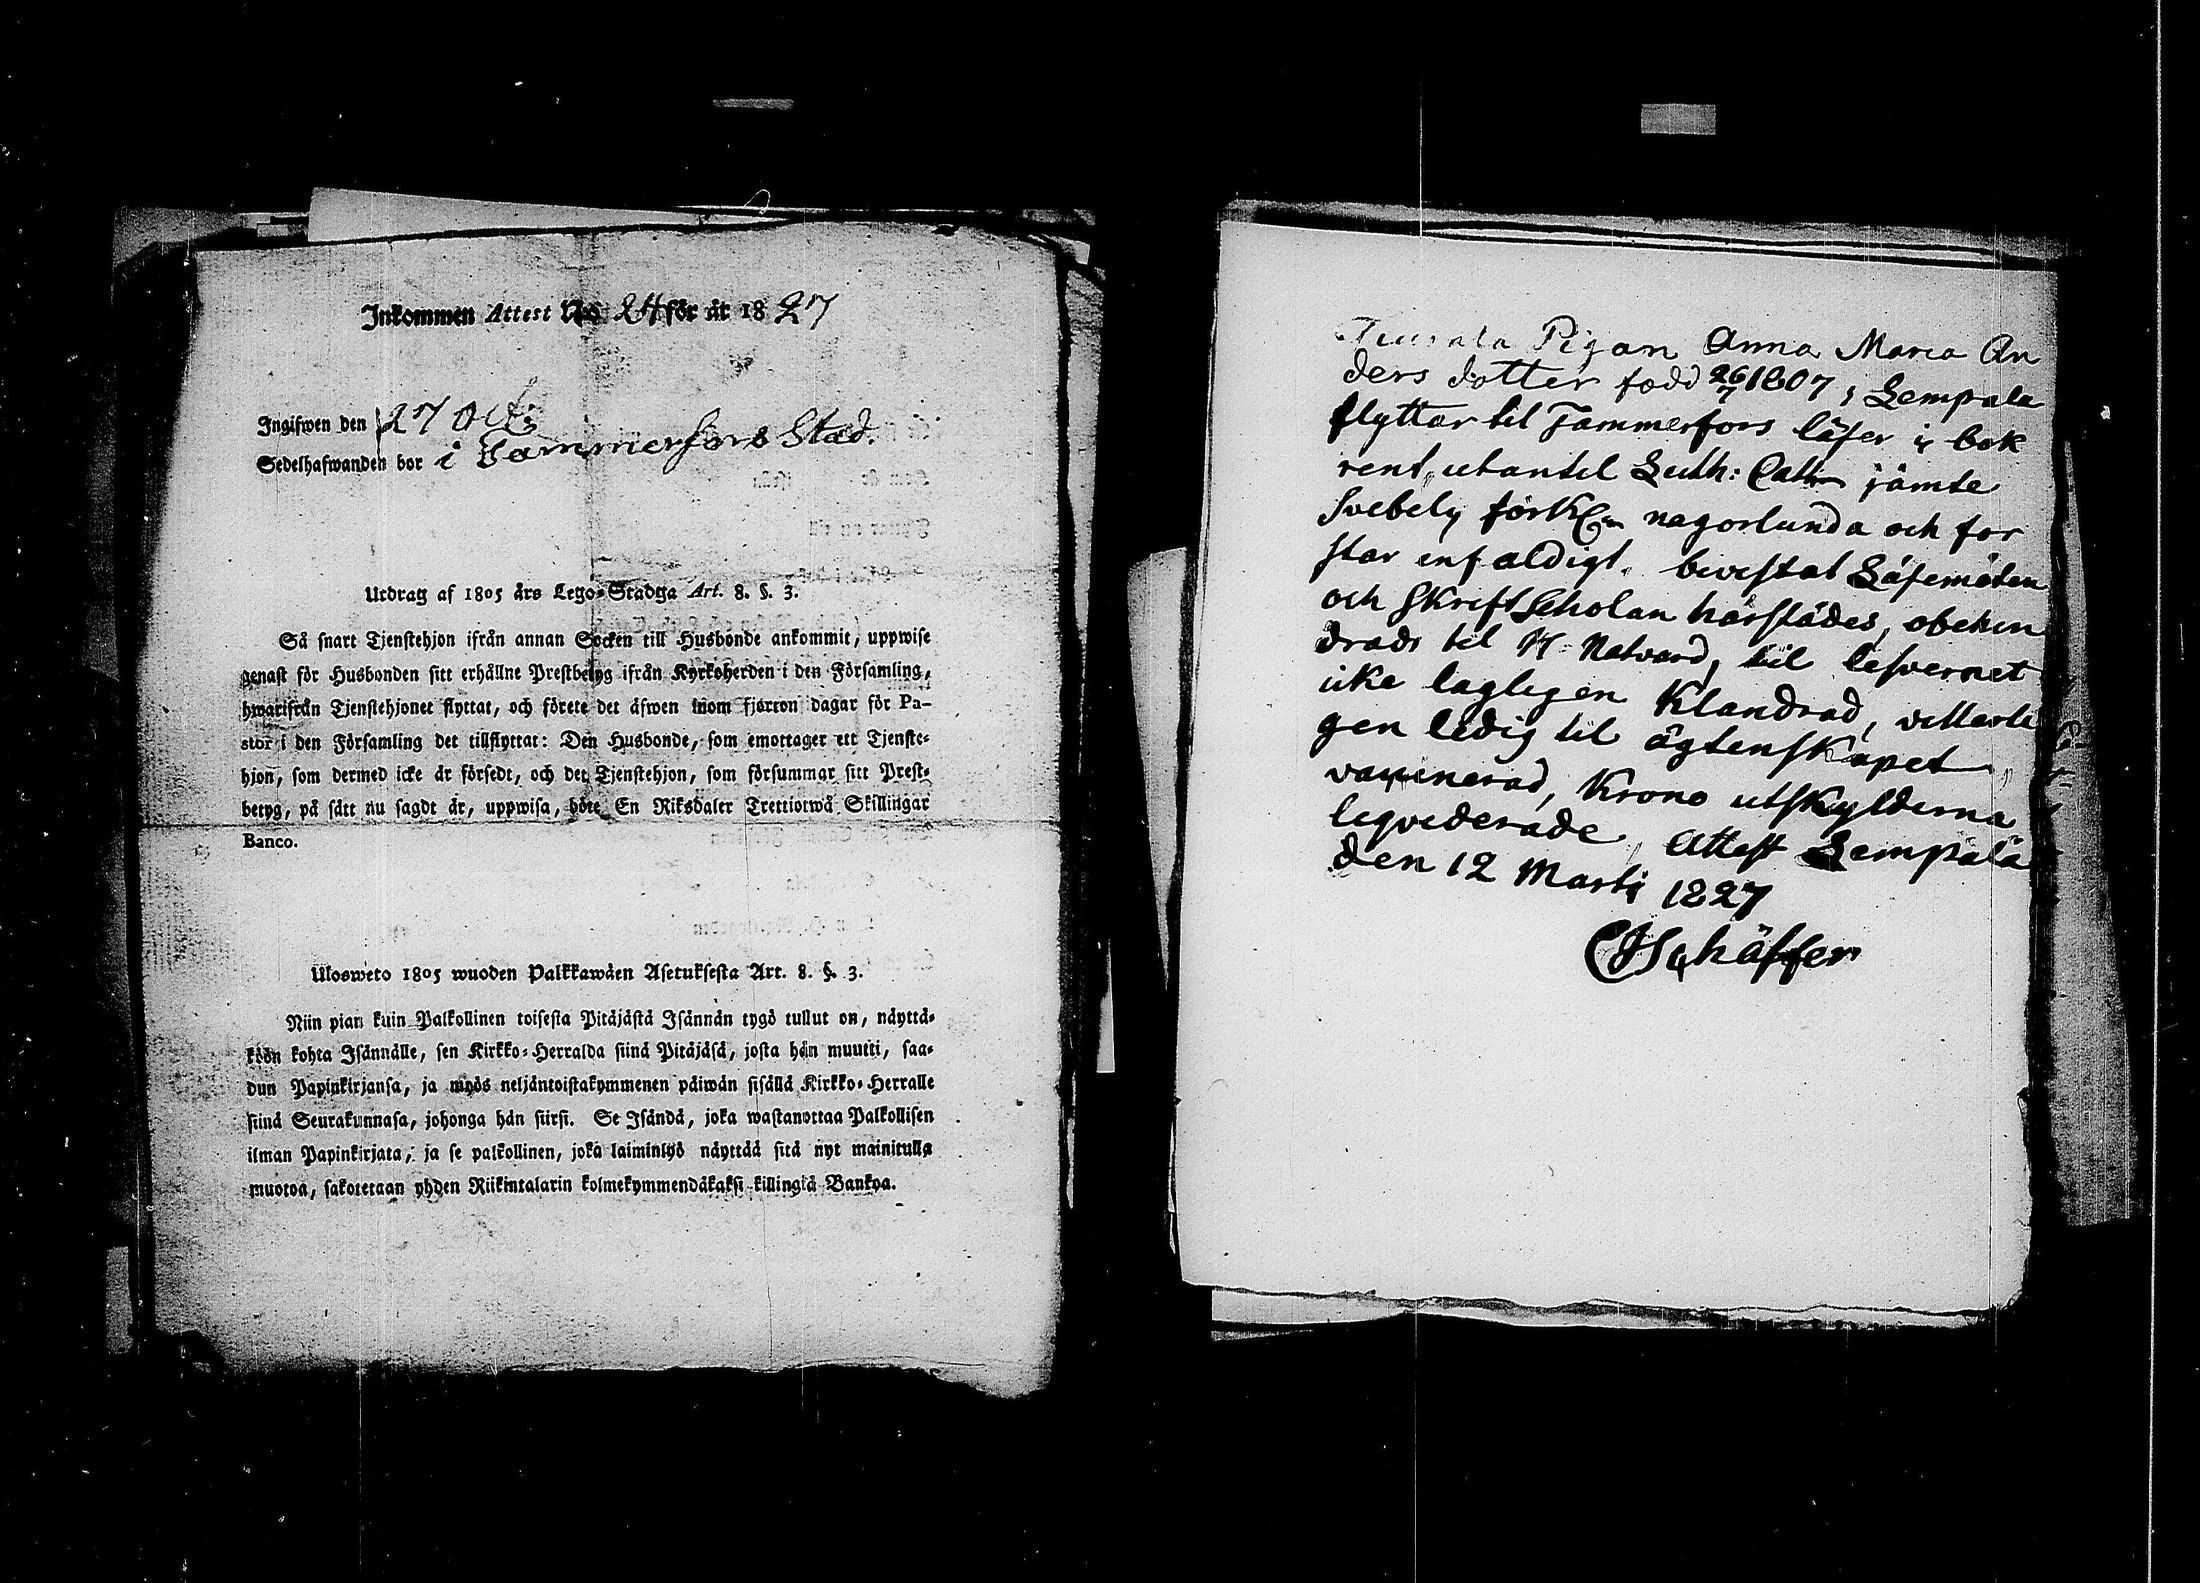 Inkommen Attest No 24 för år 1827
Ingifwen den 27 Oct:
Sedelhafwanden bor i Tammerfors Stad.
Utdrag af 1805 års Lego-Stadga Art. 8. §. 3.
Så snart Tjenstehjon ifrån annan Socken till Husbonde ankommit, uppwise
genast för Husbonden sitt erhållne Prestbetyg ifrån Kyrkoherden i den Församling,
hwarifrån Tjenstehjonet flyttat, och förete det äfwen inom fjorton dagar för Pa-
stor i den Församling det tillflyttat: Den Husbonde, som emottager ett Tjenste-
hjon, som dermed icke är försedt, och det Tjenstehjon, som försummar sitt Prest-
betyg, på sätt nu sagdt är, uppwisa, böte En Riksdaler Trettiotwå Skillingar
Banco.
Ulosweto 1805 wuoden Palkkawäen Asetuksesta Art. 8. §. 3.
Niin pian kuin Palkollinen toisesta Pitäjästä Isännän tygö tullut on, näyttä-
köön kohta Isännälle, sen Kirkko-Herralda siinä Pitäjäsä, josta hän muutti, saa-
dun Papinkirjansa, ja myös neljäntoistakymmenen päiwän sisällä Kirkko-Herralle
siinä Seurakunnasa, johonga hän siirsi. Se Isändä, joka wastanottaa Palkollisen
ilman Papinkirjata, ja se palkollinen, joka laiminlyö näyttää sitä nyt mainitulla
muotoa, sakotetaan yhden Riikintalarin kolmekymmendäkaksi killingiä Bankoa.
Pigan Anna Maria An
ders dotter fødd 26/7 1807 i Lempala
flyttar til Tammerfors läser i bok
rent, utantil Luth: Cath jämte
Svebely förkl nagorlunda och for
star enfaldigt. bevistat Läsemöten
och SkriftScholan härstädes, obehin
drad til H. Natvard, til lefvernet
icke lagligen Klandrad, vitterli
gen ledig til ägtenskapet,
vaccinerad, Krono utskylderna
liqviderade Attest Lempälä
den 12 Marti 1827
Schäffer